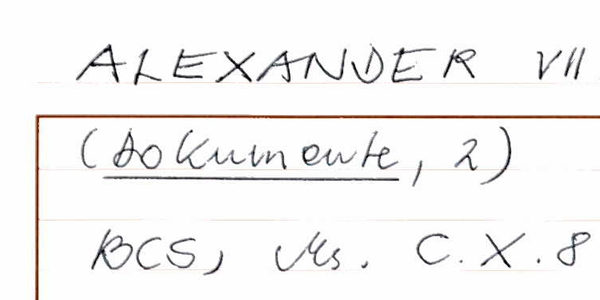 ALEXANDER VII
(Dokumente, 2)
BCS, Ms. C.X.8